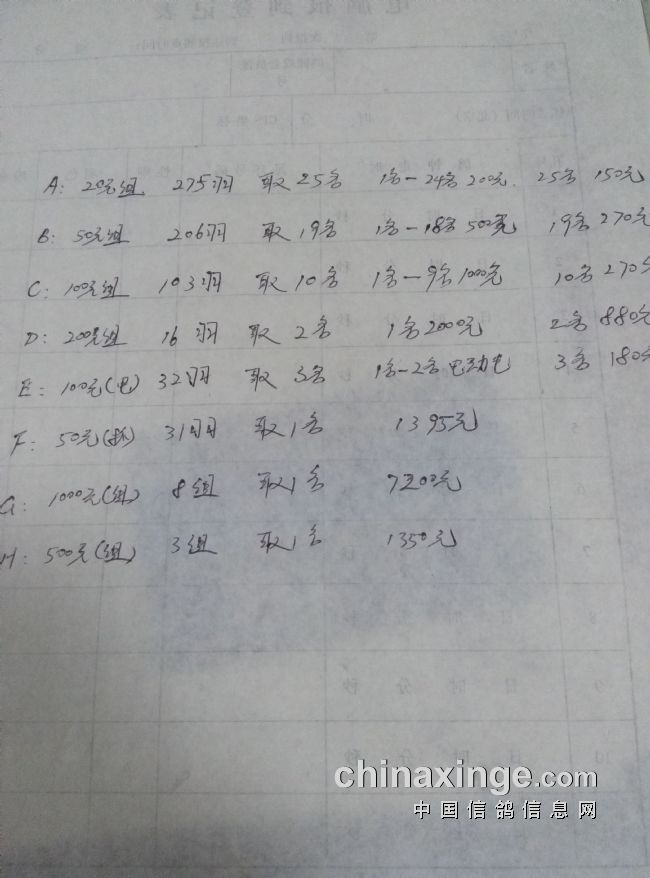 A: 20元组 275羽 取25名 1名-24名200元. 25名 150元
B: 50元组 206羽 取19名 1名-18名500元 19名 270元
C: 100元组 103羽 取10名 1名-9名1000元 10名 270元
D: 200元组 16羽 取2名 1名2000元 2名 880元
E: 100元(电) 32羽 取3名 1名-2名电动 3名 180
F: 50元 31羽 取1名 1395元
G: 1000元(组) 8组 取1名 7200元
H: 500元(组) 3组 取1名 1350元
5
6
7
8 日 时 分 秒
9 日 时 分 秒
10 日 时 分 秒
chinaxinge.com
中国信鸽信息网